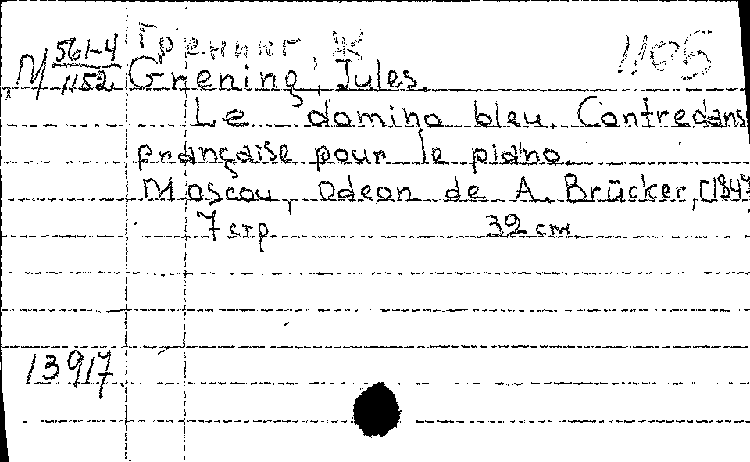 Гренинг Ж 1105
М 561-4/1152 Grening, Jules.
Le domino bleu. Contredans
française pour le piano.
Moscou, Odeon de A. Brücker, [1847
7 стр. 32 cm.
13917